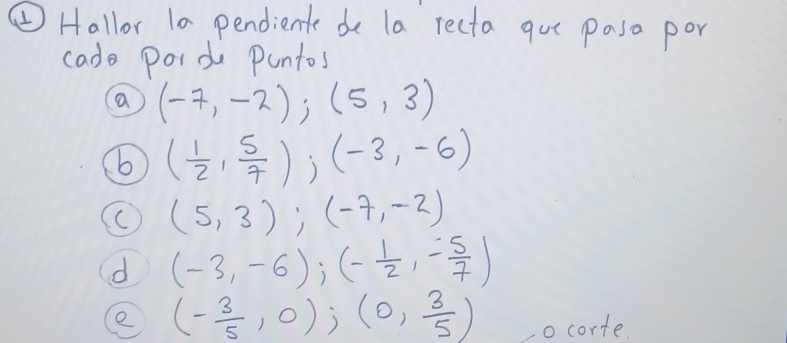 ① Hallar la pendiente de la recta que pasa por
cada par de puntos
ⓐ (-7, -2); (5, 3)
ⓑ (1/2, 5/7); (-3, -6)
ⓒ (5, 3); (-7, -2)
ⓓ (-3, -6); (-1/2, -5/7)
ⓔ (-3/5, 0); (0, 3/5)
o corte.